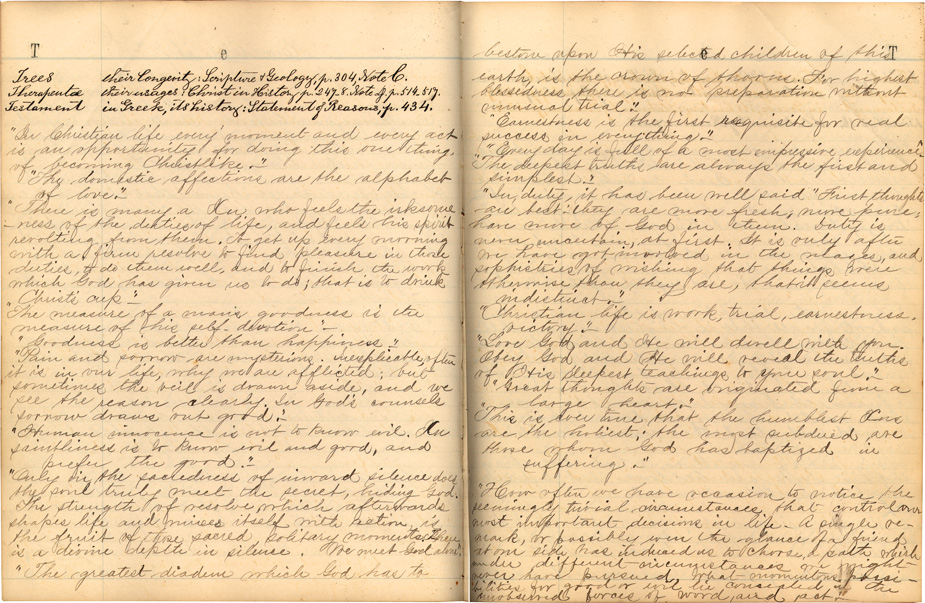 T e
Trees their Longevity: Scripture & Geology, p. 304, Note C.
Therapeuta their usages: Christ in History, p. 247.8. Note f, p. 514-517.
Testament in Greek, its history: Statement of Reasons, p. 434.
"In Christian life every moment and every act
is an opportunity for doing this one thing,
of becoming Christlike."
"The domestic affections are the alphabet
of love."
"There is many a Xn, who feels the irksome
-ness of the duties of life, and feels his spirit
revolting from them. To get up every morning
with a firm resolve to find pleasure in those
duties, & do them well, and to finish the work
which God has given us to do; that is to drink
Christ's cup"
The measure of a man's goodness is the
measure of his self-devotion"
"Goodness is better than happiness."
"Pain and sorrow are mysteries. inexplicable often
it is in our life, why we are afflicted; but
sometimes the veil is drawn aside, and we
see the reason clearly. In God's counsels
sorrow draws out good."
"Human innocence is not to know evil. Xn
saintliness is to know evil and good, and
prefer the good."
"Only in the sacredness of inward silence does
the soul truly meet the secret, hiding God.
The strength of resolve, which afterwards
shapes life and mixes itself with action, is
the fruit of those sacred, solitary moments, There
is a divine depth in silence. We meet God alone."
"The greatest diadem which God has to
e T
bestow upon His selected children of this
earth, is the crown of thorns. For highest
blessedness there is no preparation without
unusual trial."
"Earnestness is the first requisite for real
success in everything."
"Every day is full of a most impressive experience."
"The deepest truths are always the first and
simplest."
"In duty, it has been well said "First thoughts
are best: they are more fresh, more pure,
have more of God in them. Duty is
never uncertain, at first. It is only after
we have got involved in the mazes, and
sophistries of wishing that things were
otherwise than they are, that it seems
indistinct."
"Christian life is work, trial, earnestness.
victory."
"Love God and He will dwell with you.
Obey God and He will reveal the truths
of His deepest teachings to your soul."
"Great thoughts are originated from a
large heart."
"This is ever true that the humblest Xns
are the holiest; the most subdued are
those whom God has baptized in
suffering."
"How often we have occasion to notice the
seemingly trivial circumstances, that control our
most important decisions in life. A single re-
mark, or possibly even the glance of a friend
at our side has induced us to choose, a path which
under different circumstances we might
never have pursued, what momentous possi-
bilities for good or evil lie concealed in the
unobserved forces of word and act."